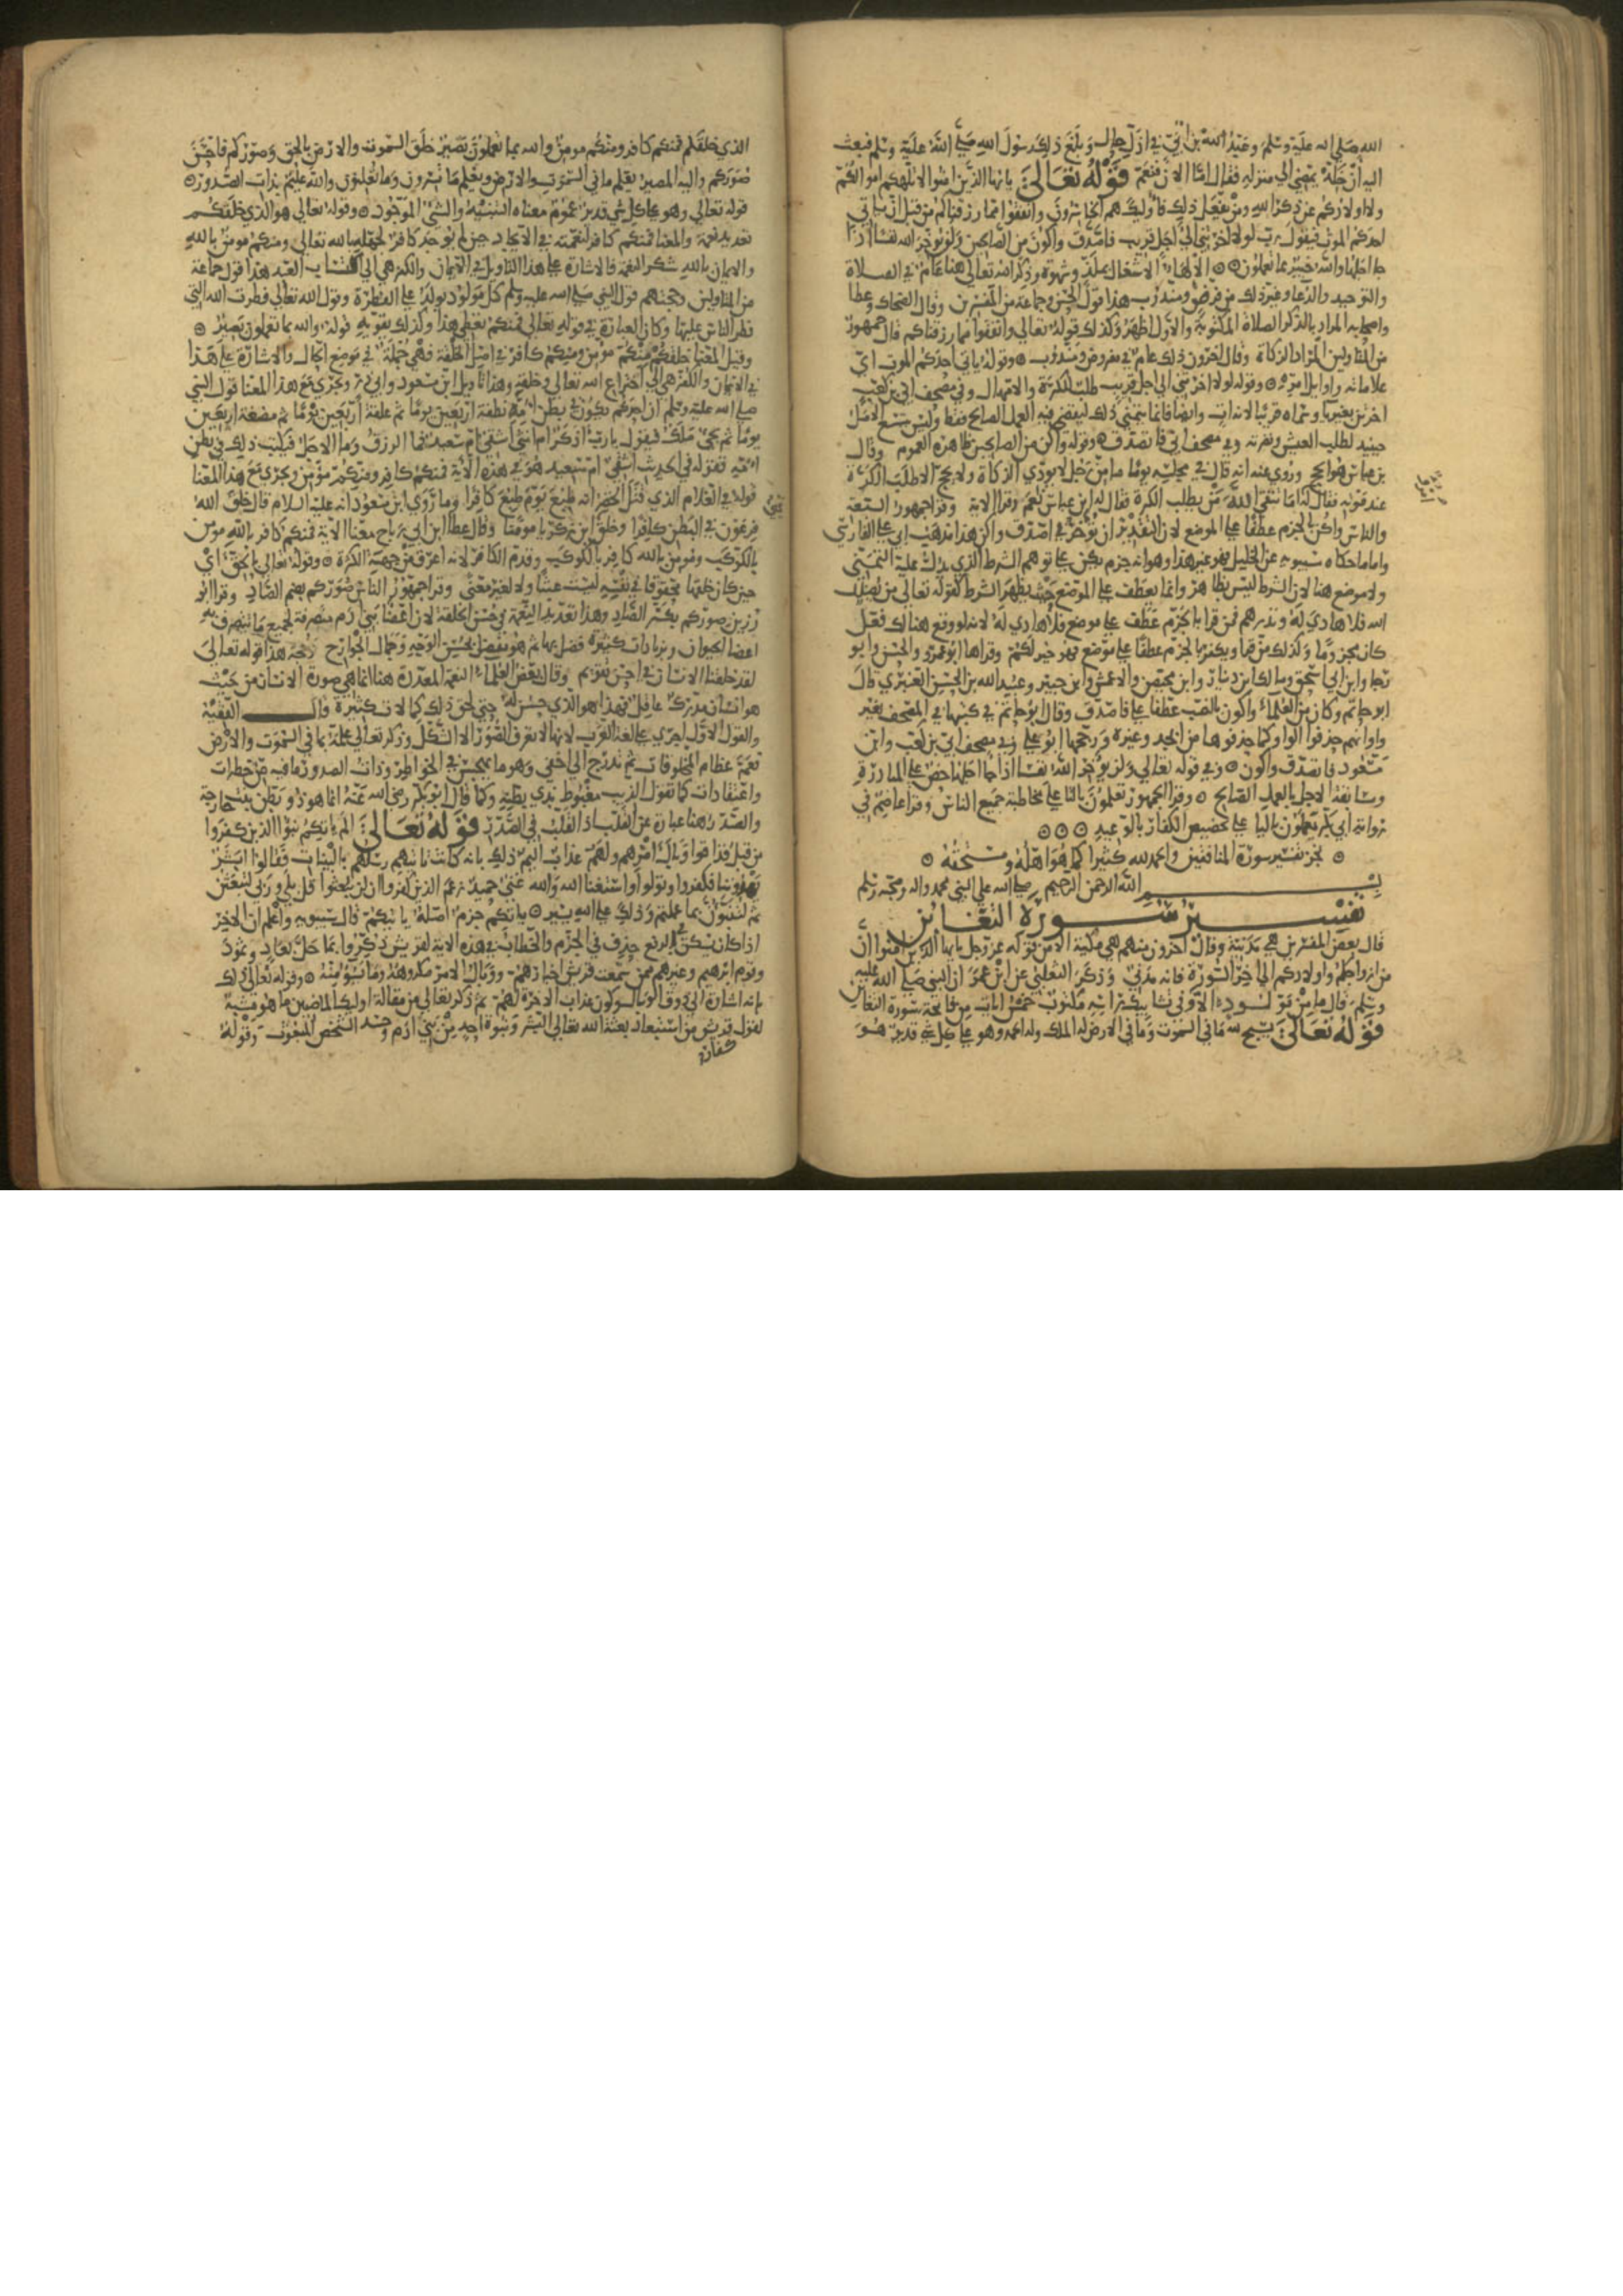 الله صلى الله عليه وسلم وعبد الله بن ابي في اذل حال وبلغ ذلك رسول الله صلى الله عليه وسلم فبعث
اليه ان خله يمضي الى منزله فقال اما الان فنعم قوله تعالى يا ايها الذين امنوا لا تلهكم اموالكم
ولا اولادكم عن ذكر الله ومن يفعل ذلك فاوليك هم الخاسرون وانفقوا مما رزقناكم من قبل ان ياتي
احدكم الموت فيقول رب لولا اخرتني الى اجل قريب فاصدق واكون من الصالحين ولن يوخر الله نفسا اذا
جا اجلها والله خبير بما تعملون الالها الاشتغال بملذ وشهوة وذكر الله تعالى هنا عام في الصلاة
والتوحيد والدعا وغير ذلك من فرض ومندوب هذا قول الحسن وجماعة من المفسرين وقال الضحاك وعطا
واصحابه المراد بالذكر الصلاة المكتوبة والاول اظهر وكذلك قوله تعالى وانفقوا مما رزقناكم قال جمهور
من المتاولين المراد الزكاة وقال اخرون ذلك عام في مفروض ومندوب وقوله ياتي احدكم الموت اي
علاماته واوايل امره وقوله لولا اخرتني الى اجل قريب طلب للكرة والامهال وفي مصحف ابي بن كعب
اخرتن بغير يا وسماه قريبا لانه ات وايضا فانما يتمنى ذلك ليقضي فيه العمل الصالح فقط وليس يتسع الامل
حينيذ لطلب العيش ونضرته وفي مصحف ابي فاتصدق وقوله واكن من الصالحين ظاهره العموم وقال
بن عباس هو الحج وروي عنه انه قال في مجلسه يوما ما من رجل لا يودي الزكاة ولا يحج الا طلب الكرة
عند موته فقال له اما تتقي الله مومن يطلب الكرة فقال له ابن عباس نعم وقرا الاية وقرا جمهور السبعة
والناس واكن بالجزم عطفا على الموضع لان التقدير ان توخرني اصدق واكن هذا مذهب ابي علي الفارسي
واما ما حكاه سيبويه عن الخليل فهو غير هذا وهو انه جزم يكن على توهم الشرط الذي يدل عليه التمني
ولا موضع هنا لان الشرط ليس بظاهر وانما يعطف على الموضع حيث يظهر الشرط كقوله تعالى من يضلل
الله فلا هادي له ونذرهم فمن قرا بالجزم عطف على موضع فلا هادي له لانه لو وقع هنالك فعل
كان مجزوما وكذلك من قرا ويكفر بالجزم عطفا على موضع فهو خير لكم وقراها ابو عمرو والحسن وابو
رجا وابن ابي اسحق ومالك بن دينار وابن محيصن والاعمش وابن جبير وعبيد الله بن الحسن العنبري قال
ابو حاتم وكان من العلماء واكون بالنصب عطفا على فاصدق وقال ابو حاتم في كتبها في المصحف بغير
واو انهم حذفوا الواو كما حذفوها من ابجد وغيره ورجحها ابو علي وفي مصحف ابي بن كعب وابن
مسعود فاتصدق واكون وفي قوله تعالى ولن يوخر الله نفسا اذا جا اجلها حض على المبادرة
ومسابقة الاجل بالعمل الصالح وقرا الجمهور تعملون بالتا على مخاطبة جميع الناس وقرا عاصم في
رواية ابي بكر يعملون باليا على تخصيص الكفار بالوعيد
نجز تفسير سورة المنافقين والحمد لله كثيرا كما هو اهله ومستحقه
بسم الله الرحمن الرحيم صلى الله على النبي محمد واله وصحبه وسلم
تفسير سورة التغابن
قال بعض المفسرين هي مدنية وقال اخرون منهم هي مكية الا من قوله عز وجل يا ايها الذين امنوا ان
من ازواجكم واولادكم الى اخر السورة فانه مدني وذكر الثعلبي عن ابن عمر ان النبي صلى الله عليه
وسلم قال ما من مولود الا وفي تشابيك راسه مكتوب خمس ايات من فاتحة سورة التغابن
قوله تعالى يسبح لله ما في السموت وما في الارض له الملك وله الحمد وهو على كل شي قدير هو
الذي خلقكم فمنكم كافر ومنكم مومن والله بما تعملون بصير خلق السموت والارض بالحق وصوركم فاحسن
صوركم واليه المصير يعلم ما في السموت والارض ويعلم ما تسرون وما تعلنون والله عليم بذات الصدور
قوله تعالى وهو على كل شي قدير عموم معناه التنبيه والشي الموجود وقوله تعالى هو الذي خلقكم
تعديد نعمة والمعنا فمنكم كافر لنعمته في الايجاد حين لم يوجد كافر لجهله بالله تعالى ومنكم مومن بالله
والايمان بالله شكر النعمة فالاشارة على هذا التاويل في الايمان والكفر هي الى اكتساب العبد هذا قول جماعة
من المتاولين وحجتهم قول النبي صلى الله عليه وسلم كل مولود يولد على الفطرة وقول الله تعالى فطرت الله التي
فطر الناس عليها وكان العبارة في قوله تعالى فمنكم تعطي هذا وكذلك يقويه قوله والله بما تعملون بصير
وقيل المعنا خلقكم منكم مومن ومنكم كافر في اصل الخلقة فهي جملة في موضع الحال والاشارة على هذا
في الايمان والكفر هي الى اختراع الله تعالى وخلقه وهذا تاويل ابن مسعود وابي ذر ويجري مع هذا المعنا قول النبي
صلى الله عليه وسلم ان احدكم يكون في بطن امه نطفة اربعين يوما ثم علقة اربعين يوما ثم مضغة اربعين
يوما ثم يجي ملك فيقول يا رب اذكر ام انثى اشقي ام سعيد فما الرزق وما الاجل فيكتب ذلك في بطن
امه فقوله في الحديث اشقي ام سعيد هو في هذه الاية فمنكم كافر ومنكم مومن ويجري مع هذا المعنا
قوله في الغلام الذي قتل الخضر انه طبع يوم طبع كافرا وما روي ابن مسعود انه عليه السلام قال خلق الله
فرعون في البطن كافرا وخلق ابن زكريا مومنا وقال عطا ابن ابي رباح معنا الاية فمنكم كافر بالله مومن
بالكوكب ومومن بالله كافر بالكوكب وقدم الكافر لانه اعرف من جهة الكثرة وقوله تعالى بالحق اي
حين كان خلقها محقوقا في نفسه ليست عبثا ولا لغير معنى وقرا جمهور الناس صوركم بضم الصاد وقرا ابو
رزين صوركم بكسر الصاد وهذا تعديد النعمة في حسن الخلقة لان اعضا بني ادم متصرفة لجميع ما تتصرف به
اعضا الحيوان وبزيادات كثيرة فضل بها ثم هو مفضل بحسن الوجه وجمال الجوارح وحجة هذا قوله تعالى
لقد خلقنا الانسان في احسن تقويم وقال بعض العلماء النعمة المعددة هنا انما هي صورة الانسان من حيث
هو انسان مدرك عاقل فهذا هو الذي حسن له حتى لحق ذلك كمالات كثيرة قال الفقيه
والقول الاول احرى على لغة العرب لانها لا تعرف الصور الا الشكل وذكر تعالى علمه بما في السموت والارض
فعم عظام المخلوقات ثم تدرج الى اخفى وهو ما يهجس في الخواطر وذات الصدور ما فيه من خطرات
واعتقادات كما تقول الذيب مغبوط بذي بطنه وكما قال ابو بكر رضي الله عنه انما هو ذو بطن بنت خارجة
والصدر هنا عبارة عن القلب اذ القلب في الصدر قوله تعالى الم ياتكم نبؤا الذين كفروا
من قبل فذاقوا وبال امرهم ولهم عذاب اليم ذلك بانه كانت تاتيهم رسلهم بالبينات فقالوا ابشر
يهدوننا فكفروا وتولوا واستغنا الله والله غني حميد زعم الذين كفروا ان لن يبعثوا قل بلى وربي لتبعثن
ثم لتنبؤن بما عملتم وذلك على الله يسير ياتكم جزم اصله ياتيكم قال سيبويه واعلم ان الاخر
اذا كان يسكن في الرفع حذف في الجزم والخطاب في هذه الاية لقريش ذكروا بما حل بعاد وثمود
وقوم ابرهيم وغيرهم ممن سمعت قريش اخبارهم ووبال الامر مكروهه وما يسوء منه وقوله تعالى ذلك
بانه اشارة الى ذوق الوبال وكون عذاب الاخرة لهم ثم ذكر تعالى من مقالة اوليك الماضين ما هو مشبه
لقول قريش من استبعاد بعثة الله تعالى البشر ونبوة احد من بني ادم وحسد الشخص المبعوث وقوله